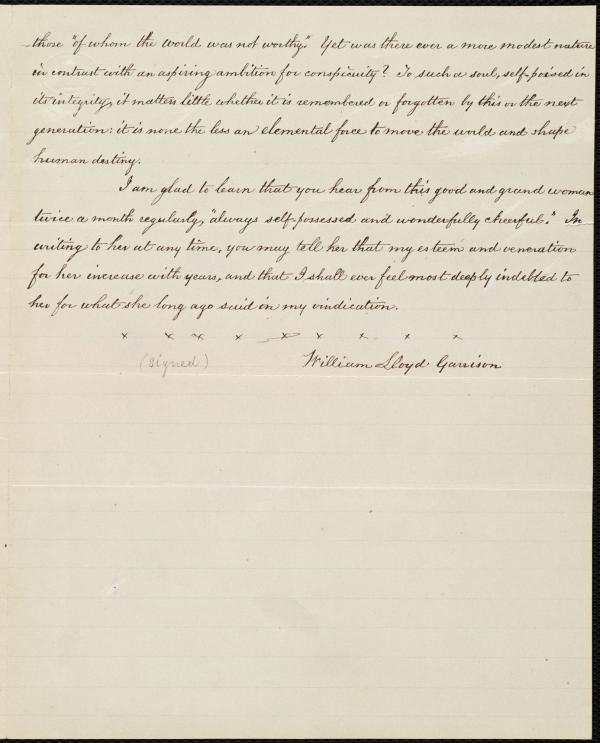 those "of whom the world was not worthy." Yet was there ever a more modest nature
in contrast with an aspiring ambition for conspicuity? To such a soul, self-poised in
its integrity, it matters little whether it is remembered or forgotten by this or the next
generation: it is none the less an elemental force to move the world and shape
human destiny.
I am glad to learn that you hear from this good and grand woman
twice a month regularly, "always self-possessed and wonderfully cheerful." In
writing to her at any time, you may tell her that my esteem and veneration
for her increase with years, and that I shall ever feel most deeply indebted to
her for what she long ago said in my vindication.
x x x x x x x x x
(signed) William Lloyd Garrison